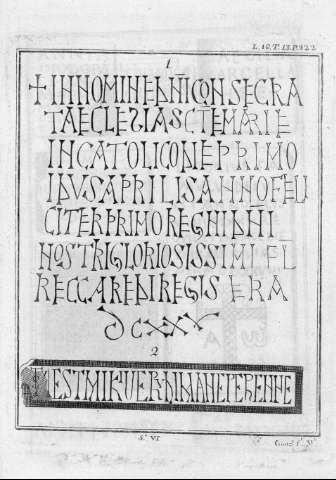 L. 10. T. 13. P. 322
1
+ IN NOMINE DNI CON SECRA
TA ECLESIA SCTE MARIE
IN CATOLICO DIE PRIMO
IDUS APRILIS ANNO FELI
CITER PRIMO REGNI DNI
NOSTRI GLORIOSISSIMI FL
RECCAREDI REGIS ERA
DCXXV
2
EST MIKVERDNIMANEPERENNE
S. VI